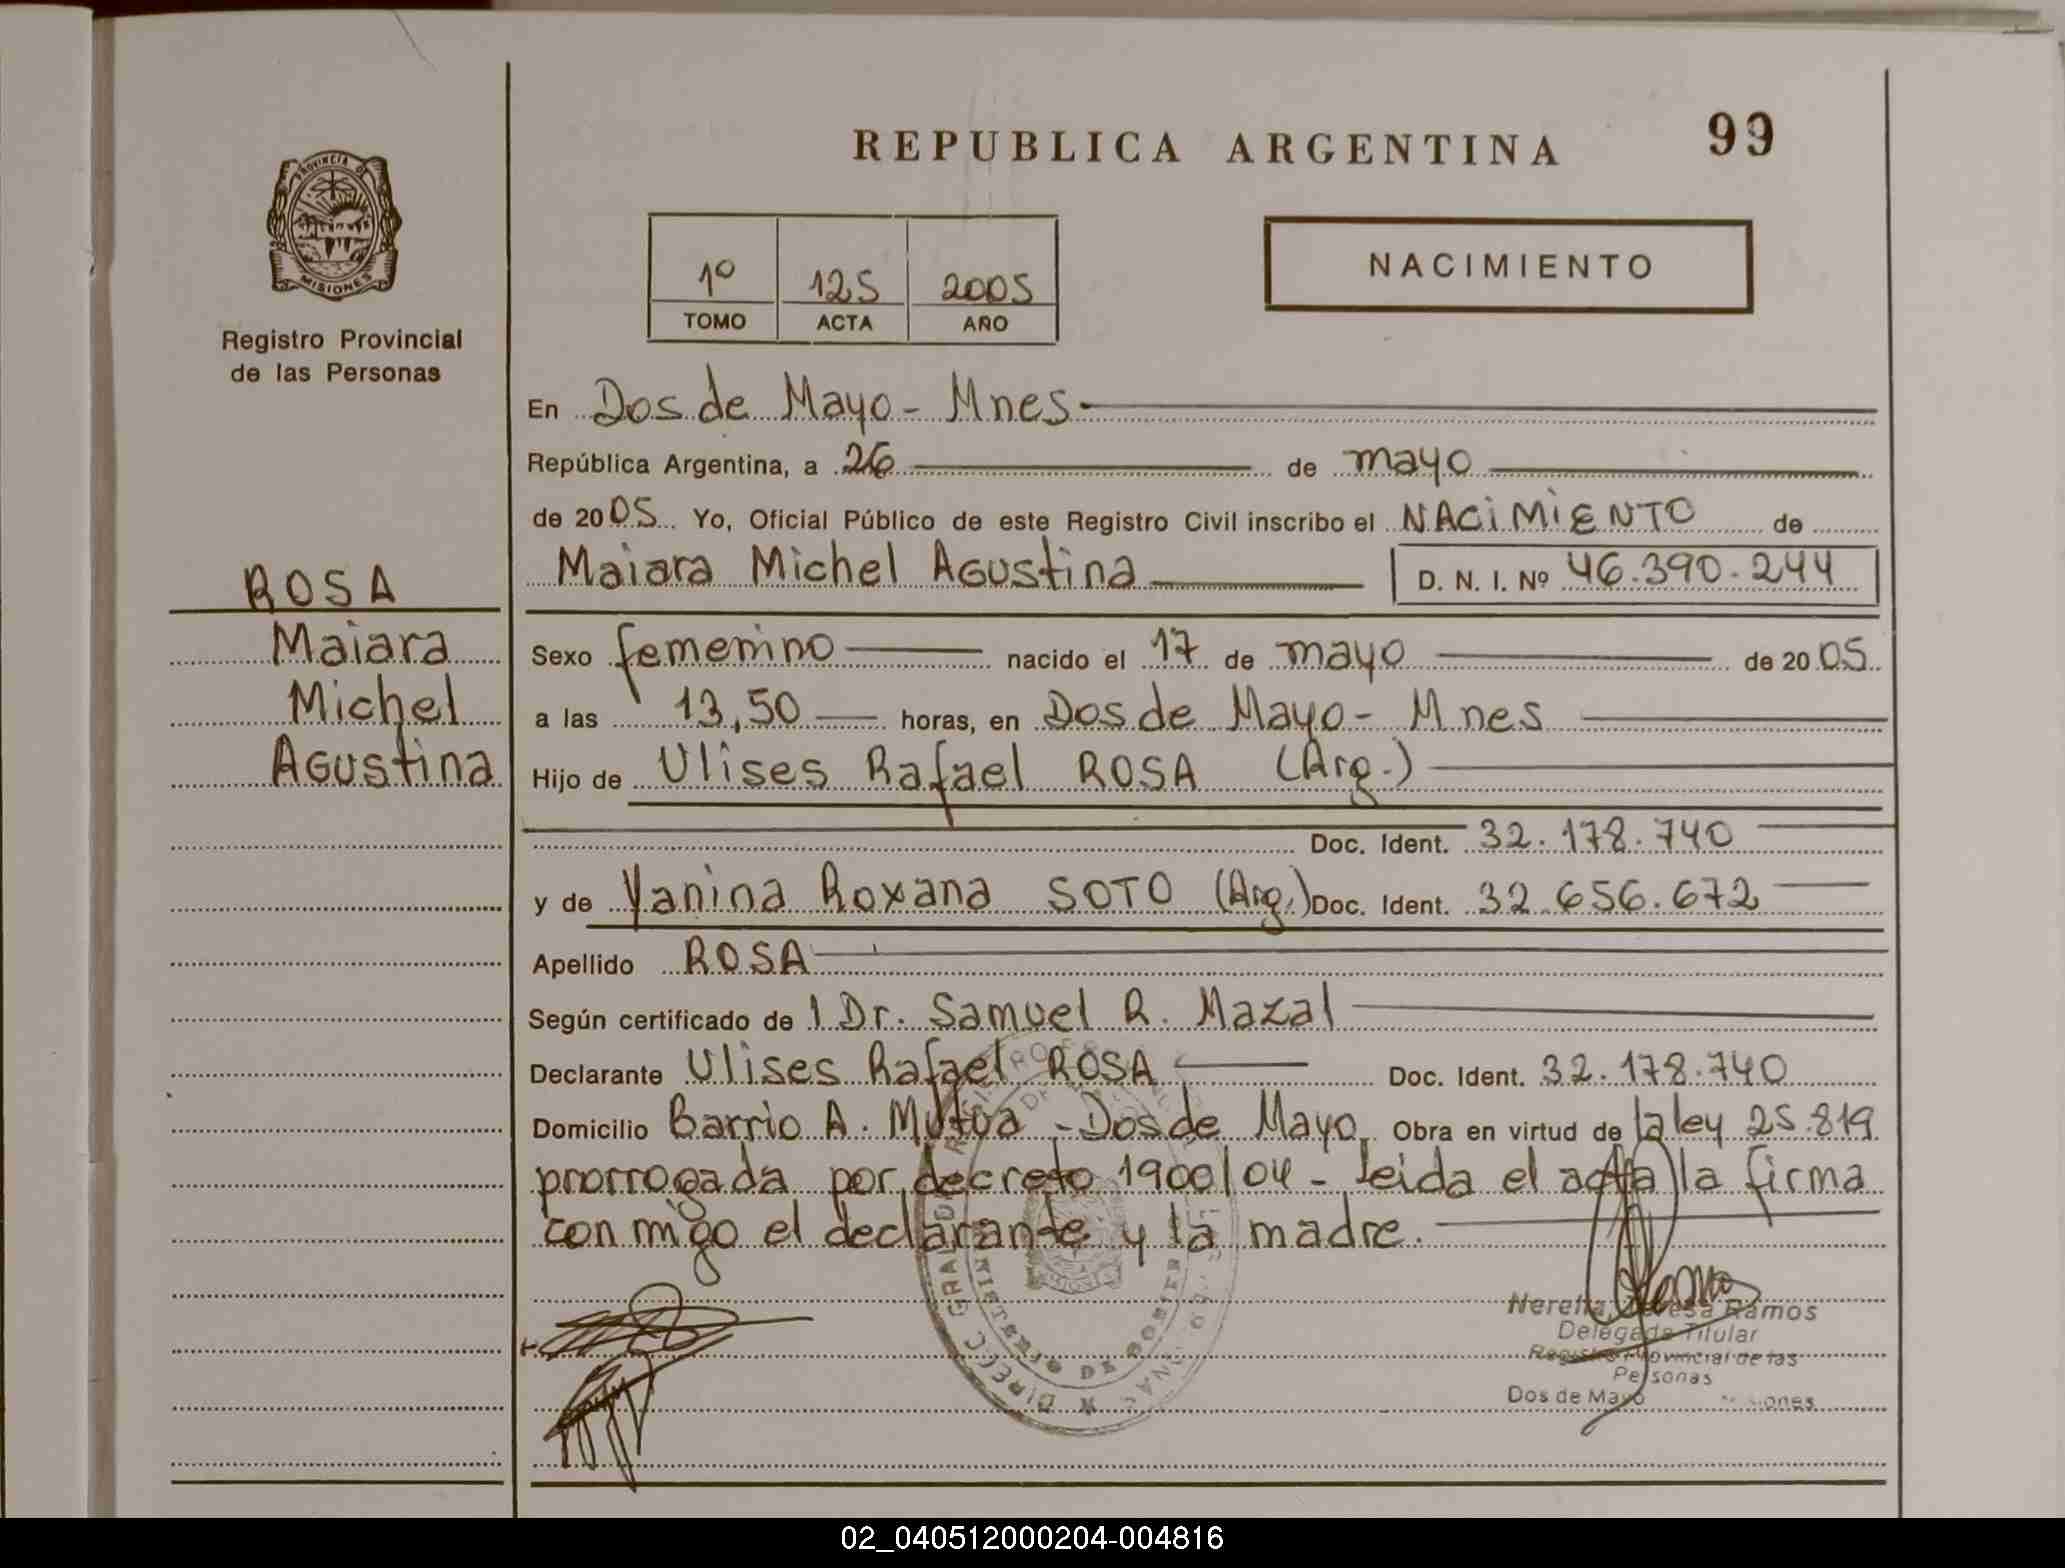 REPUBLICA ARGENTINA 99
PROVINCIA DE
MISIONES
Registro Provincial
de las Personas
1º 125 2005
TOMO ACTA AÑO
NACIMIENTO
En Dos de Mayo - Mnes
República Argentina, a 26 de mayo
de 2005 Yo, Oficial Público de este Registro Civil inscribo el NACIMIENTO de
Maiara Michel Agustina D. N. I. Nº 46.390.244
ROSA
Maiara
Michel
Agustina
Sexo femenino nacido el 17 de mayo de 2005
a las 13,50 horas, en Dos de Mayo - Mnes
Hijo de Ulises Rafael ROSA (Arg.)
Doc. Ident. 32.178.740
y de Yanina Roxana SOTO (Arg.) Doc. Ident. 32.656.672
Apellido ROSA
Según certificado de l Dr. Samuel R. Mazal
Declarante Ulises Rafael ROSA Doc. Ident. 32.178.740
Domicilio Barrio A. Mutua - Dos de Mayo. Obra en virtud de la ley 25.819
prorrogada por decreto 1900/04 - leida el acta la firma
con migo el declarante y la madre.
Teresa Ramos
Delegada Titular
Registro Provincial de las
Personas
Dos de Mayo Misiones
02_040512000204-004816